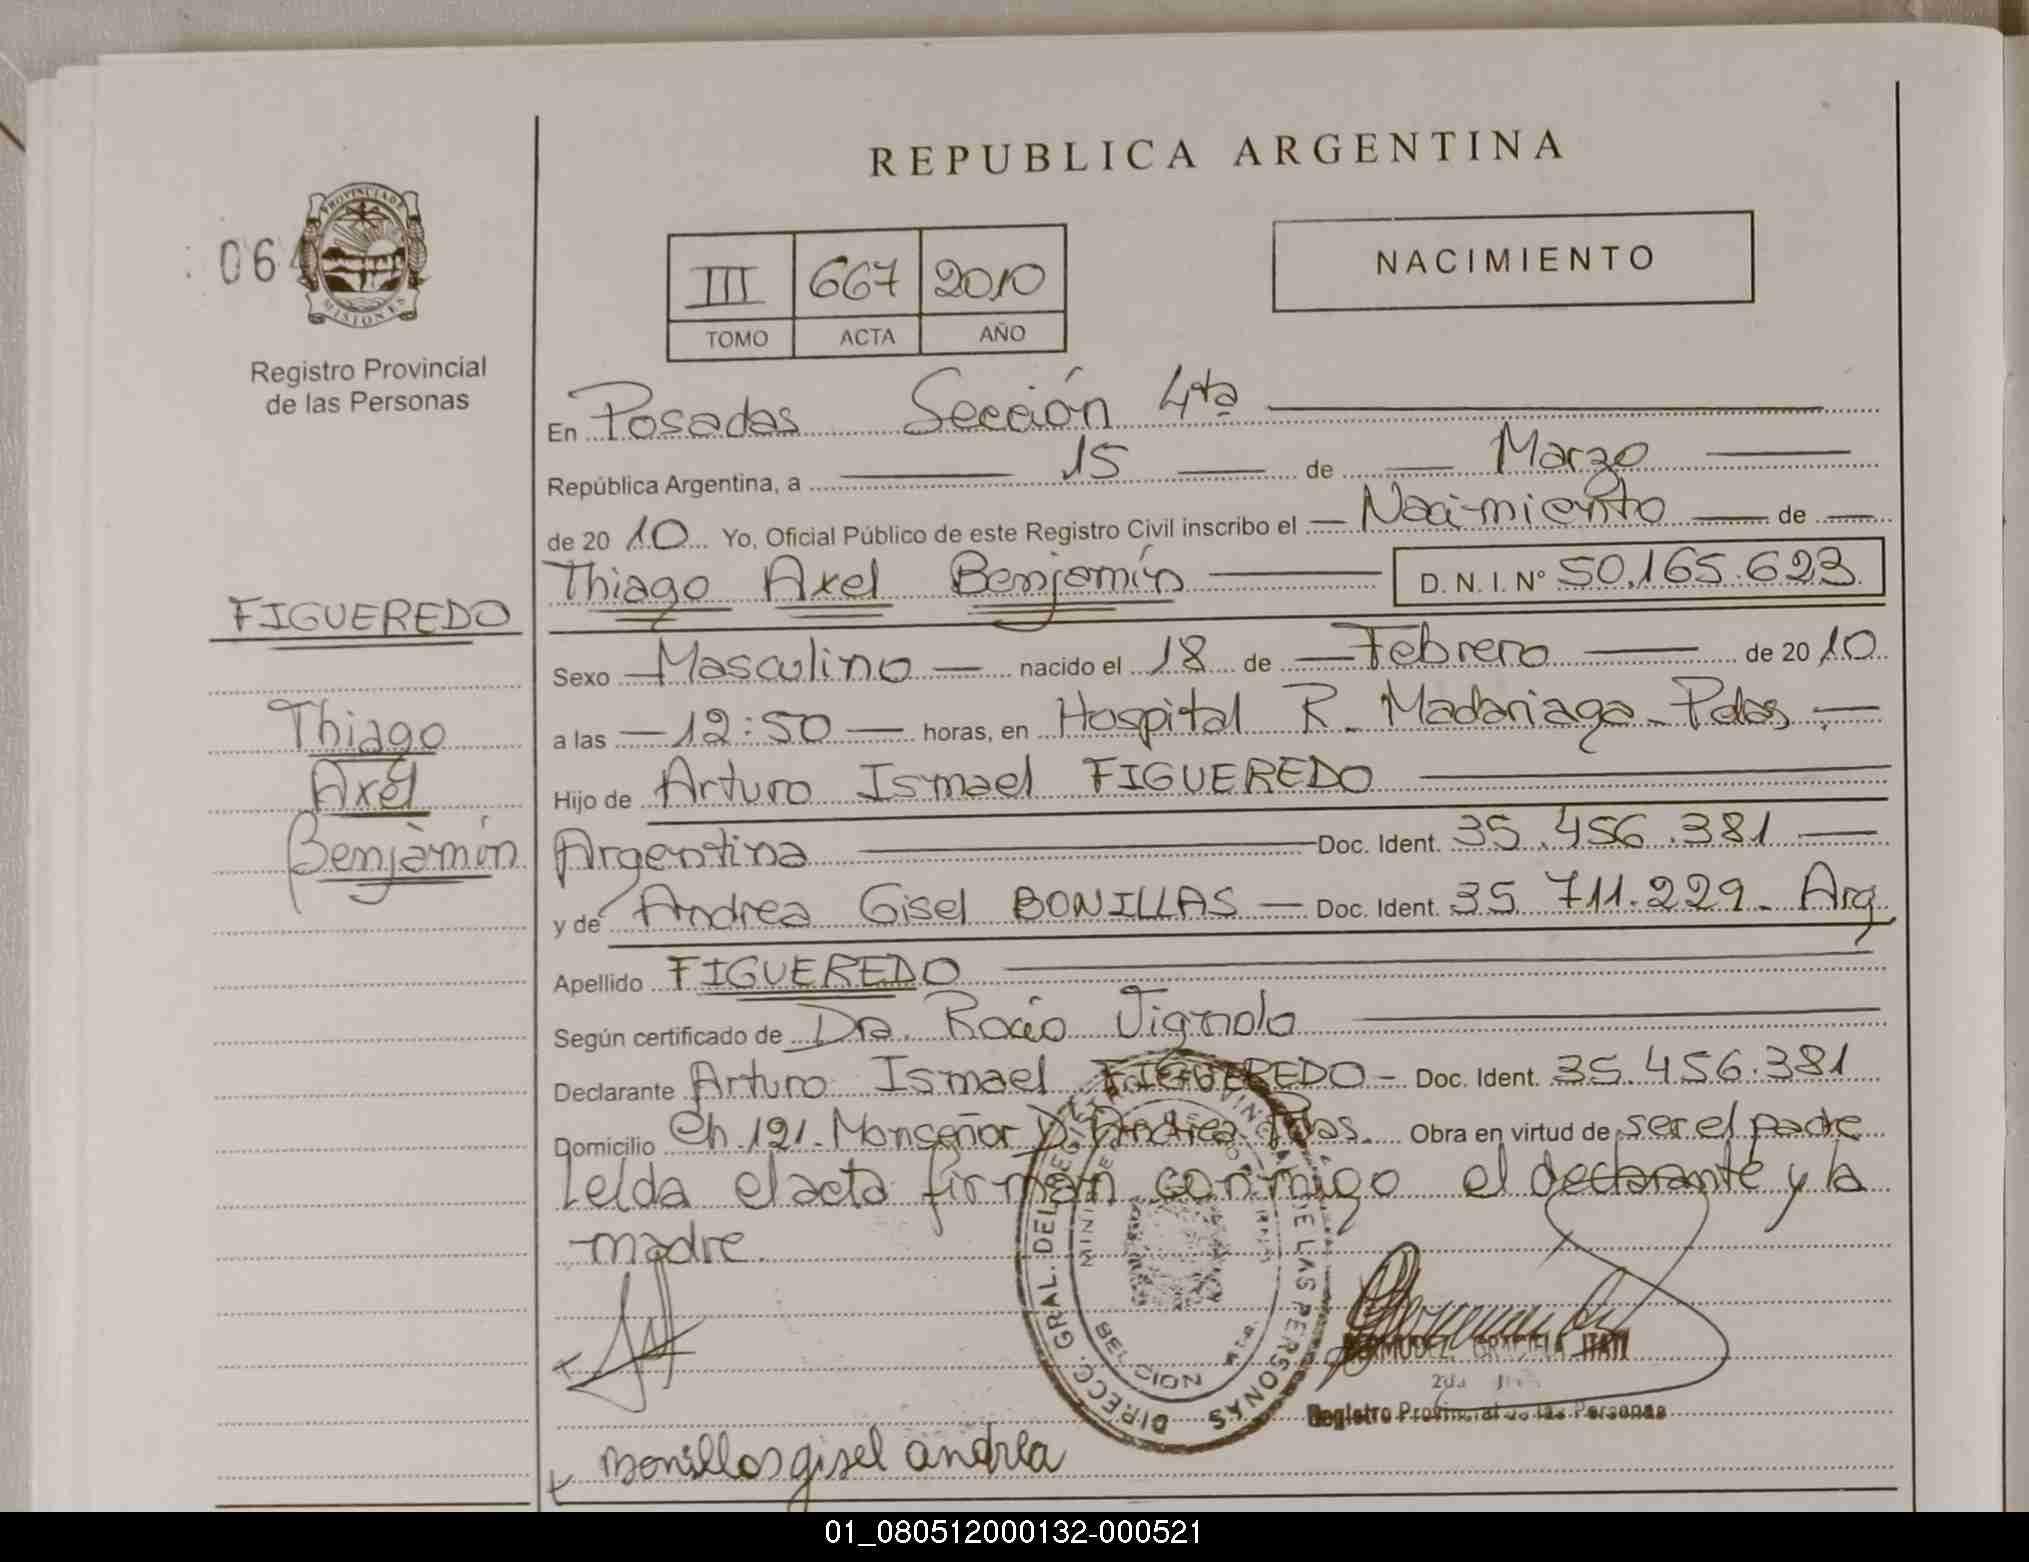 REPUBLICA ARGENTINA
PROVINCIA DE
MISIONES
Registro Provincial
de las Personas
III 667 2010
TOMO ACTA AÑO
NACIMIENTO
En Posadas Sección 4ta
República Argentina, a 15 de Marzo
de 2010 Yo, Oficial Público de este Registro Civil inscribo el Nacimiento de
Thiago Axel Benjamín D. N. I. Nº 50.165.623
FIGUEREDO
Thiago
Axel
Benjamín
Sexo Masculino nacido el 18 de Febrero de 2010
a las 12:50 horas, en Hospital R. Madariaga - Pdas.
Hijo de Arturo Ismael FIGUEREDO
Argentina Doc. Ident. 35.456.381
y de Andrea Gisel BONILLAS Doc. Ident. 35.711.229 - Arg
Apellido FIGUEREDO
Según certificado de Dra. Rocío Vignolo
Declarante Arturo Ismael FIGUEREDO - Doc. Ident. 35.456.381
Domicilio Ch. 121 - Monseñor D. Andrea Pdas. Obra en virtud de ser el padre
Leída el acta firman conmigo el declarante y la
madre.
DIRECC. GRAL. DEL REGISTRO PROVINCIAL DE LAS PERSONAS
GRACIELA ITATI
Registro Provincial de las Personas
Bonillas gisel andrea
01_080512000132-000521